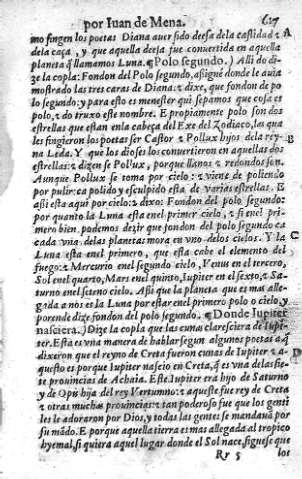 por Iuan de Mena. 617
mo fingen los poetas Diana auer sido deesa dela castidad z A
dela caça, y que aquella deesa fue conuertida en aquella
planeta q̃ llamamos Luna. ¶ Polo segundo.) Alli do di
ze la copla: Fondon del Polo segundo, assigue donde le auia
mostrado las tres caras de Diana: z dixe, que fondon de po
lo segundo: y para esto es menester qui sepamos que cosa es
polo, z do truxo este nombre. E propiamente polo son dos
estrellas que estan enla cabeça del Exe del Zodiaco, las qua
les fingieron los poetas ser Castor z Pollux hijos dela rey- B
na Leda. Y que los dioses los conuertieron en aquellas dos
estrellas: z dizen se Pollux, porque llanos z redondos son.
Aunque Pollux se toma por cielo: z viene de poliendo
por pulir: ca polido y esculpido esta de varias estrellas. E
assi esta aqui por cielo: z dixo: Fondon del Polo segundo:
por quanto la Luna esta enel primer cielo, z si enel pri-
mero bien podemos dezir que fondon del polo segundo ca
cada vna delas planetas mora en vno delos cielos. Y la C
Luna esta enel primero, que esta cabe el elemento del
fuego: z Mercurio enel segundo cielo, Venus en el tercero,
Sol enel quarto, Mars enel quinto, Iupiter en el sexto, z Sa-
turno enel seteno cielo. Assi que la planeta que es mas alle-
gada a nos es la Luna por estar enel primer polo o cielo, y
porende dize fondon del polo segundo. ¶ Donde Iupiter
nasciera.) Dize la copla que las cunas claresciera de Iupi-
ter. Esta es vna manera de hablar segun algunos poetas a q̃
dixeron que el reyno de Creta fueron cunas de Iupiter z a- D
questo es porque Iupiter nascio en Creta, q̃ es vna delas sie-
te prouincias de Achaia. Este Iupiter era hijo de Saturno
y de Opis hija del rey Vertumno: z aqueste fue rey de Creta
z otras muchas prouincias: z tan poderoso fue que los genti
les le adoraron por Dios, y todas las gentes se mandauã por
su mãdo. E porque aquella tierra es mas allegada al tropico
hyemal, si quiera aquel lugar donde el Sol nace, siguese que
Rr 5 los